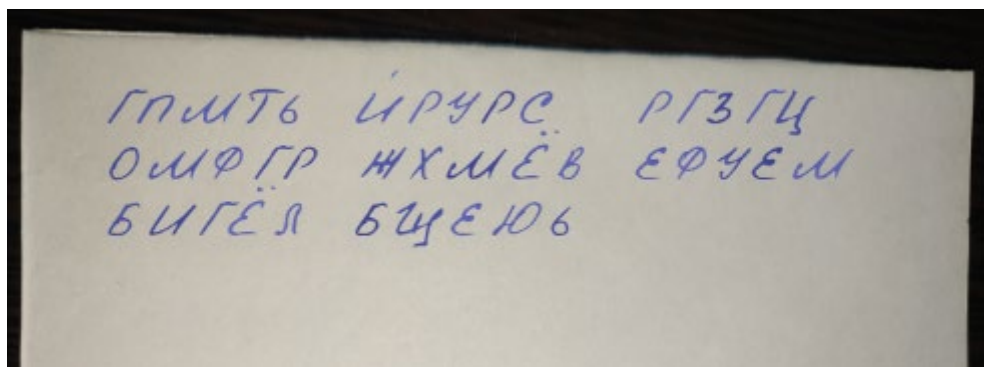 ГПМТЬ ЙРУРС РГЗГЦ
ОМФГР ЖХМЁВ ЕФУЕМ
БИГЁЛ БЩЕЮЬ